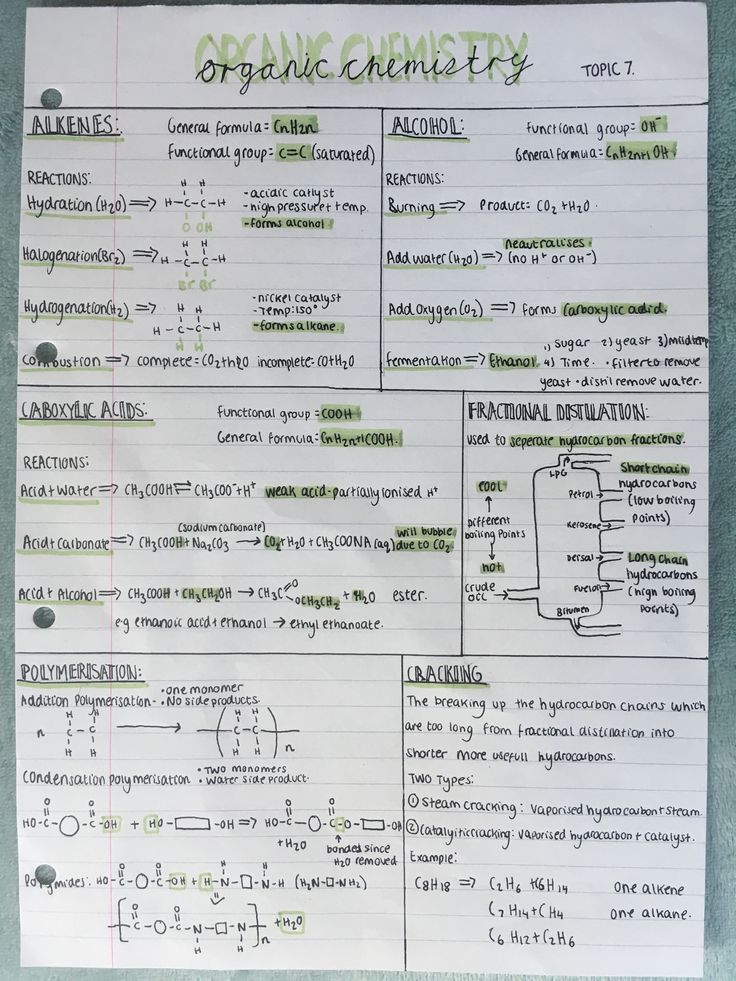 ORGANIC CHEMISTRY
organic chemistry
TOPIC 7.
ALKENES:
General formula = CnH2n
Functional group = C=C (saturated)
REACTIONS:
Hydration (H2O) ⟹
H H
H-C-C-H
O OH
-acidic catlyst
-high pressure + temp.
-forms alcohol
Halogenation (Br2) ⟹
H H
H-C-C-H
Br Br
Hydrogenation (H2) ⟹
H H
H-C-C-H
H H
-nickel catalyst
-Temp: 150°
-forms alkane.
Combustion ⟹ complete = CO2+H2O incomplete = CO+H2O
ALCOHOL:
Functional group = OH⁻
General formula = CnH2n+1 OH.
REACTIONS:
Burning ⟹ Product = CO2 + H2O.
Add water (H2O) ⟹ neautralises. (no H⁺ or OH⁻)
Add Oxygen (O2) ⟹ forms carboxylic acid.
1) sugar 2) yeast 3) mild temp
fermentation ⟹ Ethanol. 4) Time. • filter to remove
yeast • distil remove water.
CABOXYLIC ACIDS:
Functional group = COOH
General formula = CnH2n+1COOH.
REACTIONS:
Acid + Water ⟹ CH3COOH ⇌ CH3COO⁻ + H⁺ weak acid - partially ionised H⁺
(sodium carbonate)
Acid + Carbonate ⟹ CH3COOH + Na2CO3 → CO2 + H2O + CH3COONA (aq)
will bubble
due to CO2
Acid + Alcohol ⟹ CH3COOH + CH3CH2OH → CH3C O OCH3CH2 + H2O ester.
e.g ethanoic acid + ethanol → ethyl ethanoate.
FRACTIONAL DISTILATION:
used to seperate hydrocarbon fractions.
cool
Different
boiling Points
hot
crude
OIL
LPG
Petrol
Kerosene
Deisal
Fuel oil
Bitumen
Short chain
hydrocarbons
(low boiling
points)
Long chain
hydrocarbons
(high boiling
points)
POLYMERISATION:
Addition Polymerisation -
• one monomer
• No side products.
H H
n C-C
H H
→
H H
( C-C ) n
H H
Condensation polymerisation
• Two monomers
• Water side product.
O O
HO-C-○-C-OH + HO-▭-OH ⟹
O O
HO-C-○-C-O-▭-OH
+H2O
bonded since
H2O removed
Polymides: HO-C-○-C-OH + H-N-□-N-H (H2N-□-NH2)
O O
H H
[ C-○-C-N-□-N ]n + H2O
O O
H H
CRACKING
The breaking up the hydrocarbon chains which
are too long from fractional distillation into
shorter more usefull hydrocarbons.
TWO Types:
① Steam cracking: Vaporised hydrocarbon + steam.
② Catalyitic cracking: vaporised hydrocarbon + catalyst.
Example:
C8H18 ⟹ C2H6 + C6H14 one alkene
C7H14 + CH4 one alkane.
C6H12 + C2H6